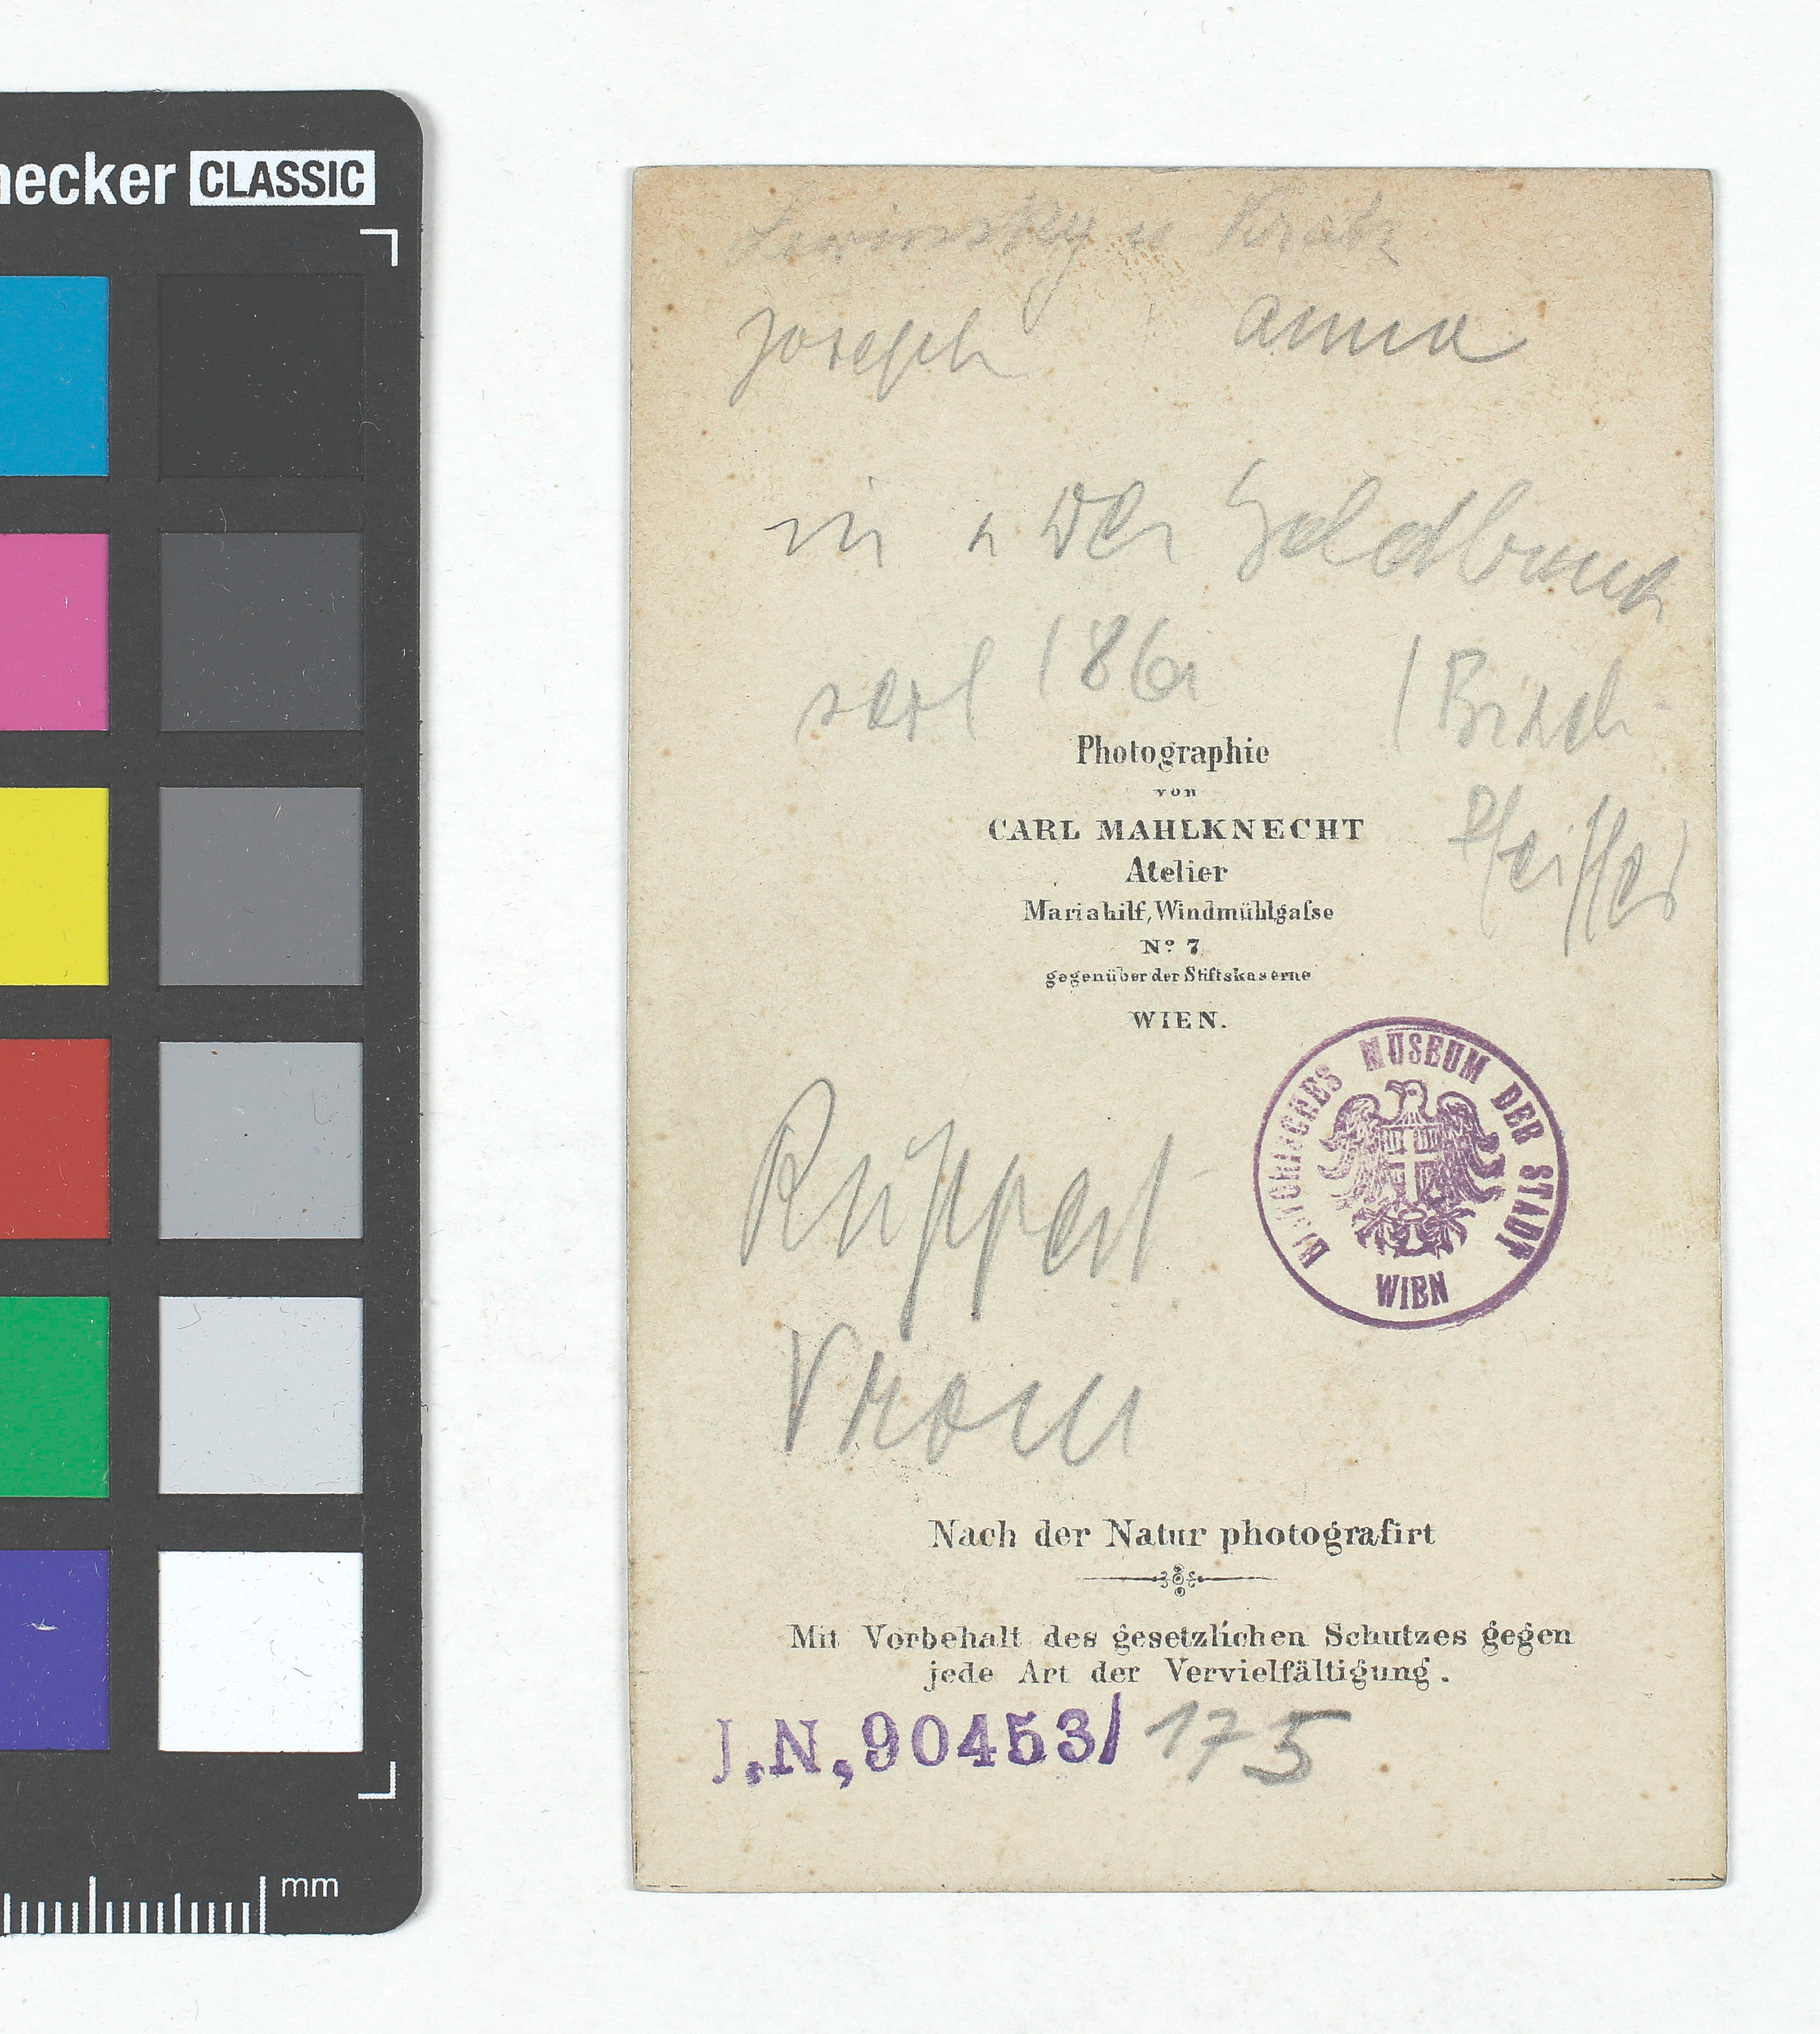 necker CLASSIC
Lewinsky u Kratz
Joseph Anna
in "Der Goldbauer
seit 186
(Birch-
Pfeiffer)
Photographie
von
CARL MAHLKNECHT
Atelier
Mariahilf, Windmühlgaſse
Nº 7
gegenüber der Stiftskaserne
WIEN.
HISTORISCHES MUSEUM DER STADT
WIEN
Ruppert
Vroni
Nach der Natur photografirt
Mit Vorbehalt des gesetzlichen Schutzes gegen
jede Art der Vervielfältigung.
J.N, 90453/ 175
mm